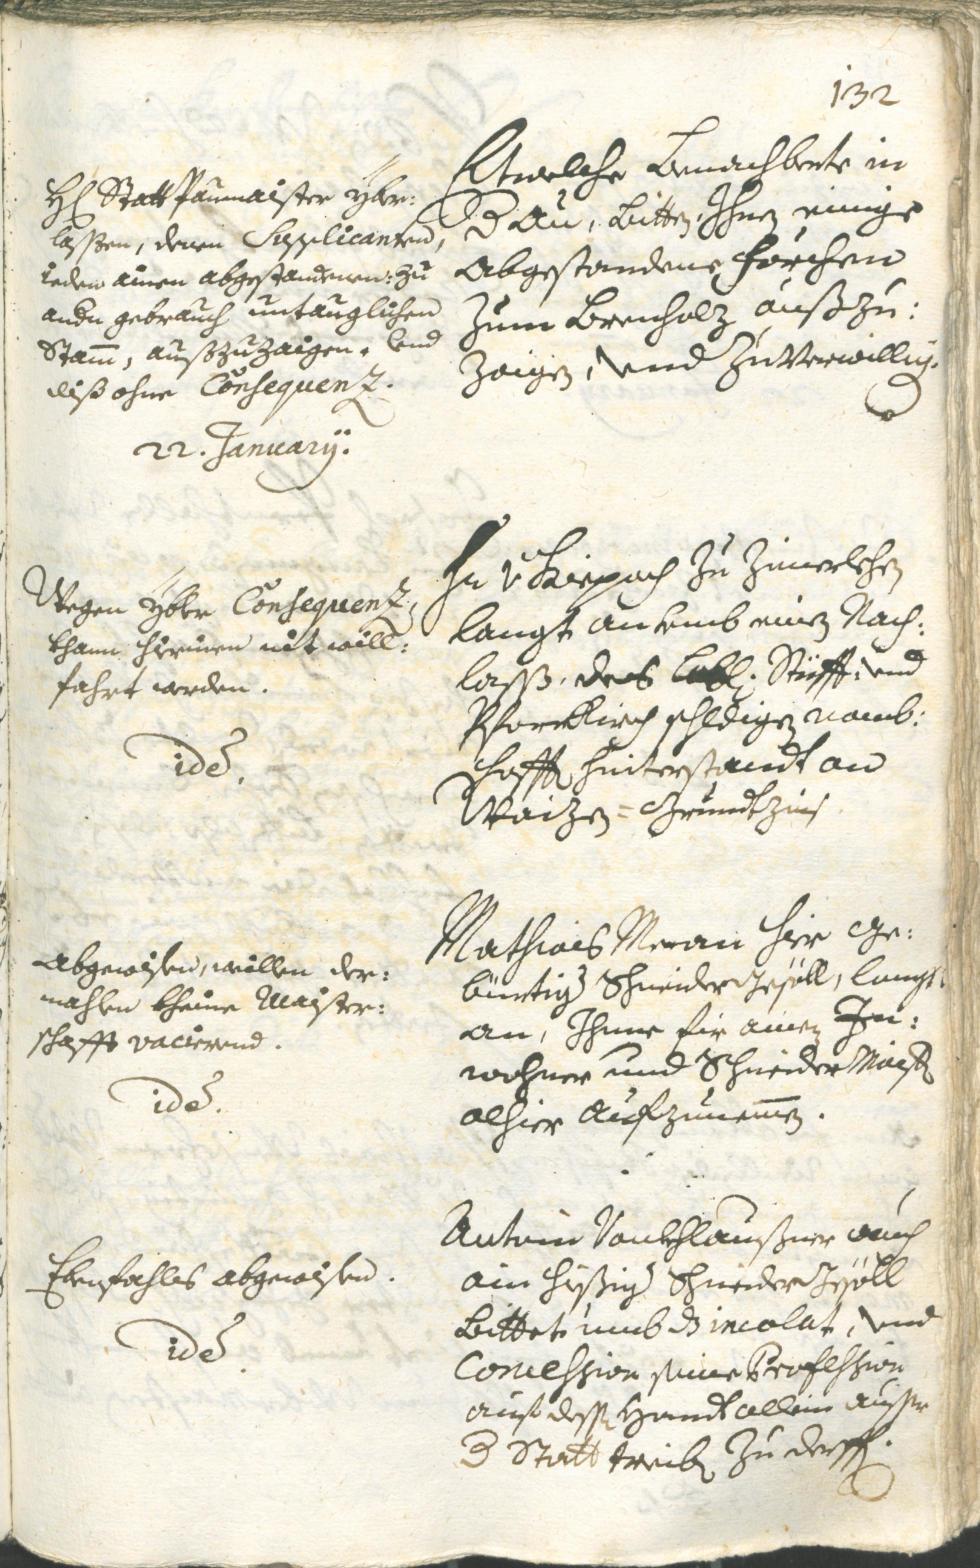 132
H: Statt Paumaister yber:
lassen, denen Supplicanten,
ieden ainen abgestandenen: zu
andn gebrauch untauglichen
Stam̅, außzuzaigen, vnd
diß ohne Consequenz.
22. January.
Etwelche benachberte in
d Au, bitten, Ihnen einige
abgestandene forchen
zum brenholz außzu:
zaigen, vnd zuverwillig.
Wegen ybler Consequenz,
khann hierinen nit will:
fahrt werden.
ide.
langt an umb einen Nach:
lass, des löbl. Stüfft: vnd
Pfarrkirch schldigen namb:
hafften hinterstandt an
Waitzen = Grundtzins
Abgewisen, willen der:
mahlen kheine Maister:
schafft vacierend.
ide.
Mathias Meran hier ge:
bürtig Schneider Gsöll, langt
an, Ihme für ainen In:
wohner und Schneider Maistr
alhier aufzunem̅en.
Ebenfahls abgewisen.
ide.
Antoni Vonkhlaußner auch
ain hießig Schneider Gsöll
bittet umb dz incolat, vnd
Concession seine Profession
auf dess Handt allein ausser
d Statt treiben zu derffen.